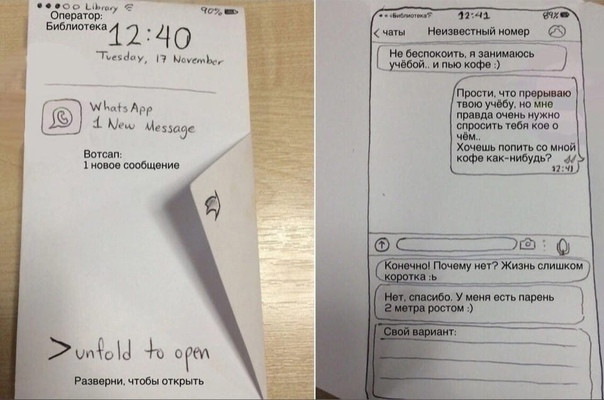 Library
90%
Оператор:
Библиотека
12:40
Tuesday, 17 November
WhatsApp
1 New Message
Вотсап:
1 новое сообщение
>unfold to open
Разверни, чтобы открыть
Библиотека
12:41
89%
< чаты
Неизвестный номер
Не беспокоить, я занимаюсь
учёбой.. и пью кофе :)
Прости, что прерываю
твою учёбу, но мне
правда очень нужно
спросить тебя кое о
чём..
Хочешь попить со мной
кофе как-нибудь?
12:41
Конечно! Почему нет? Жизнь слишком
коротка :ь
Нет, спасибо. У меня есть парень
2 метра ростом :)
Свой вариант: